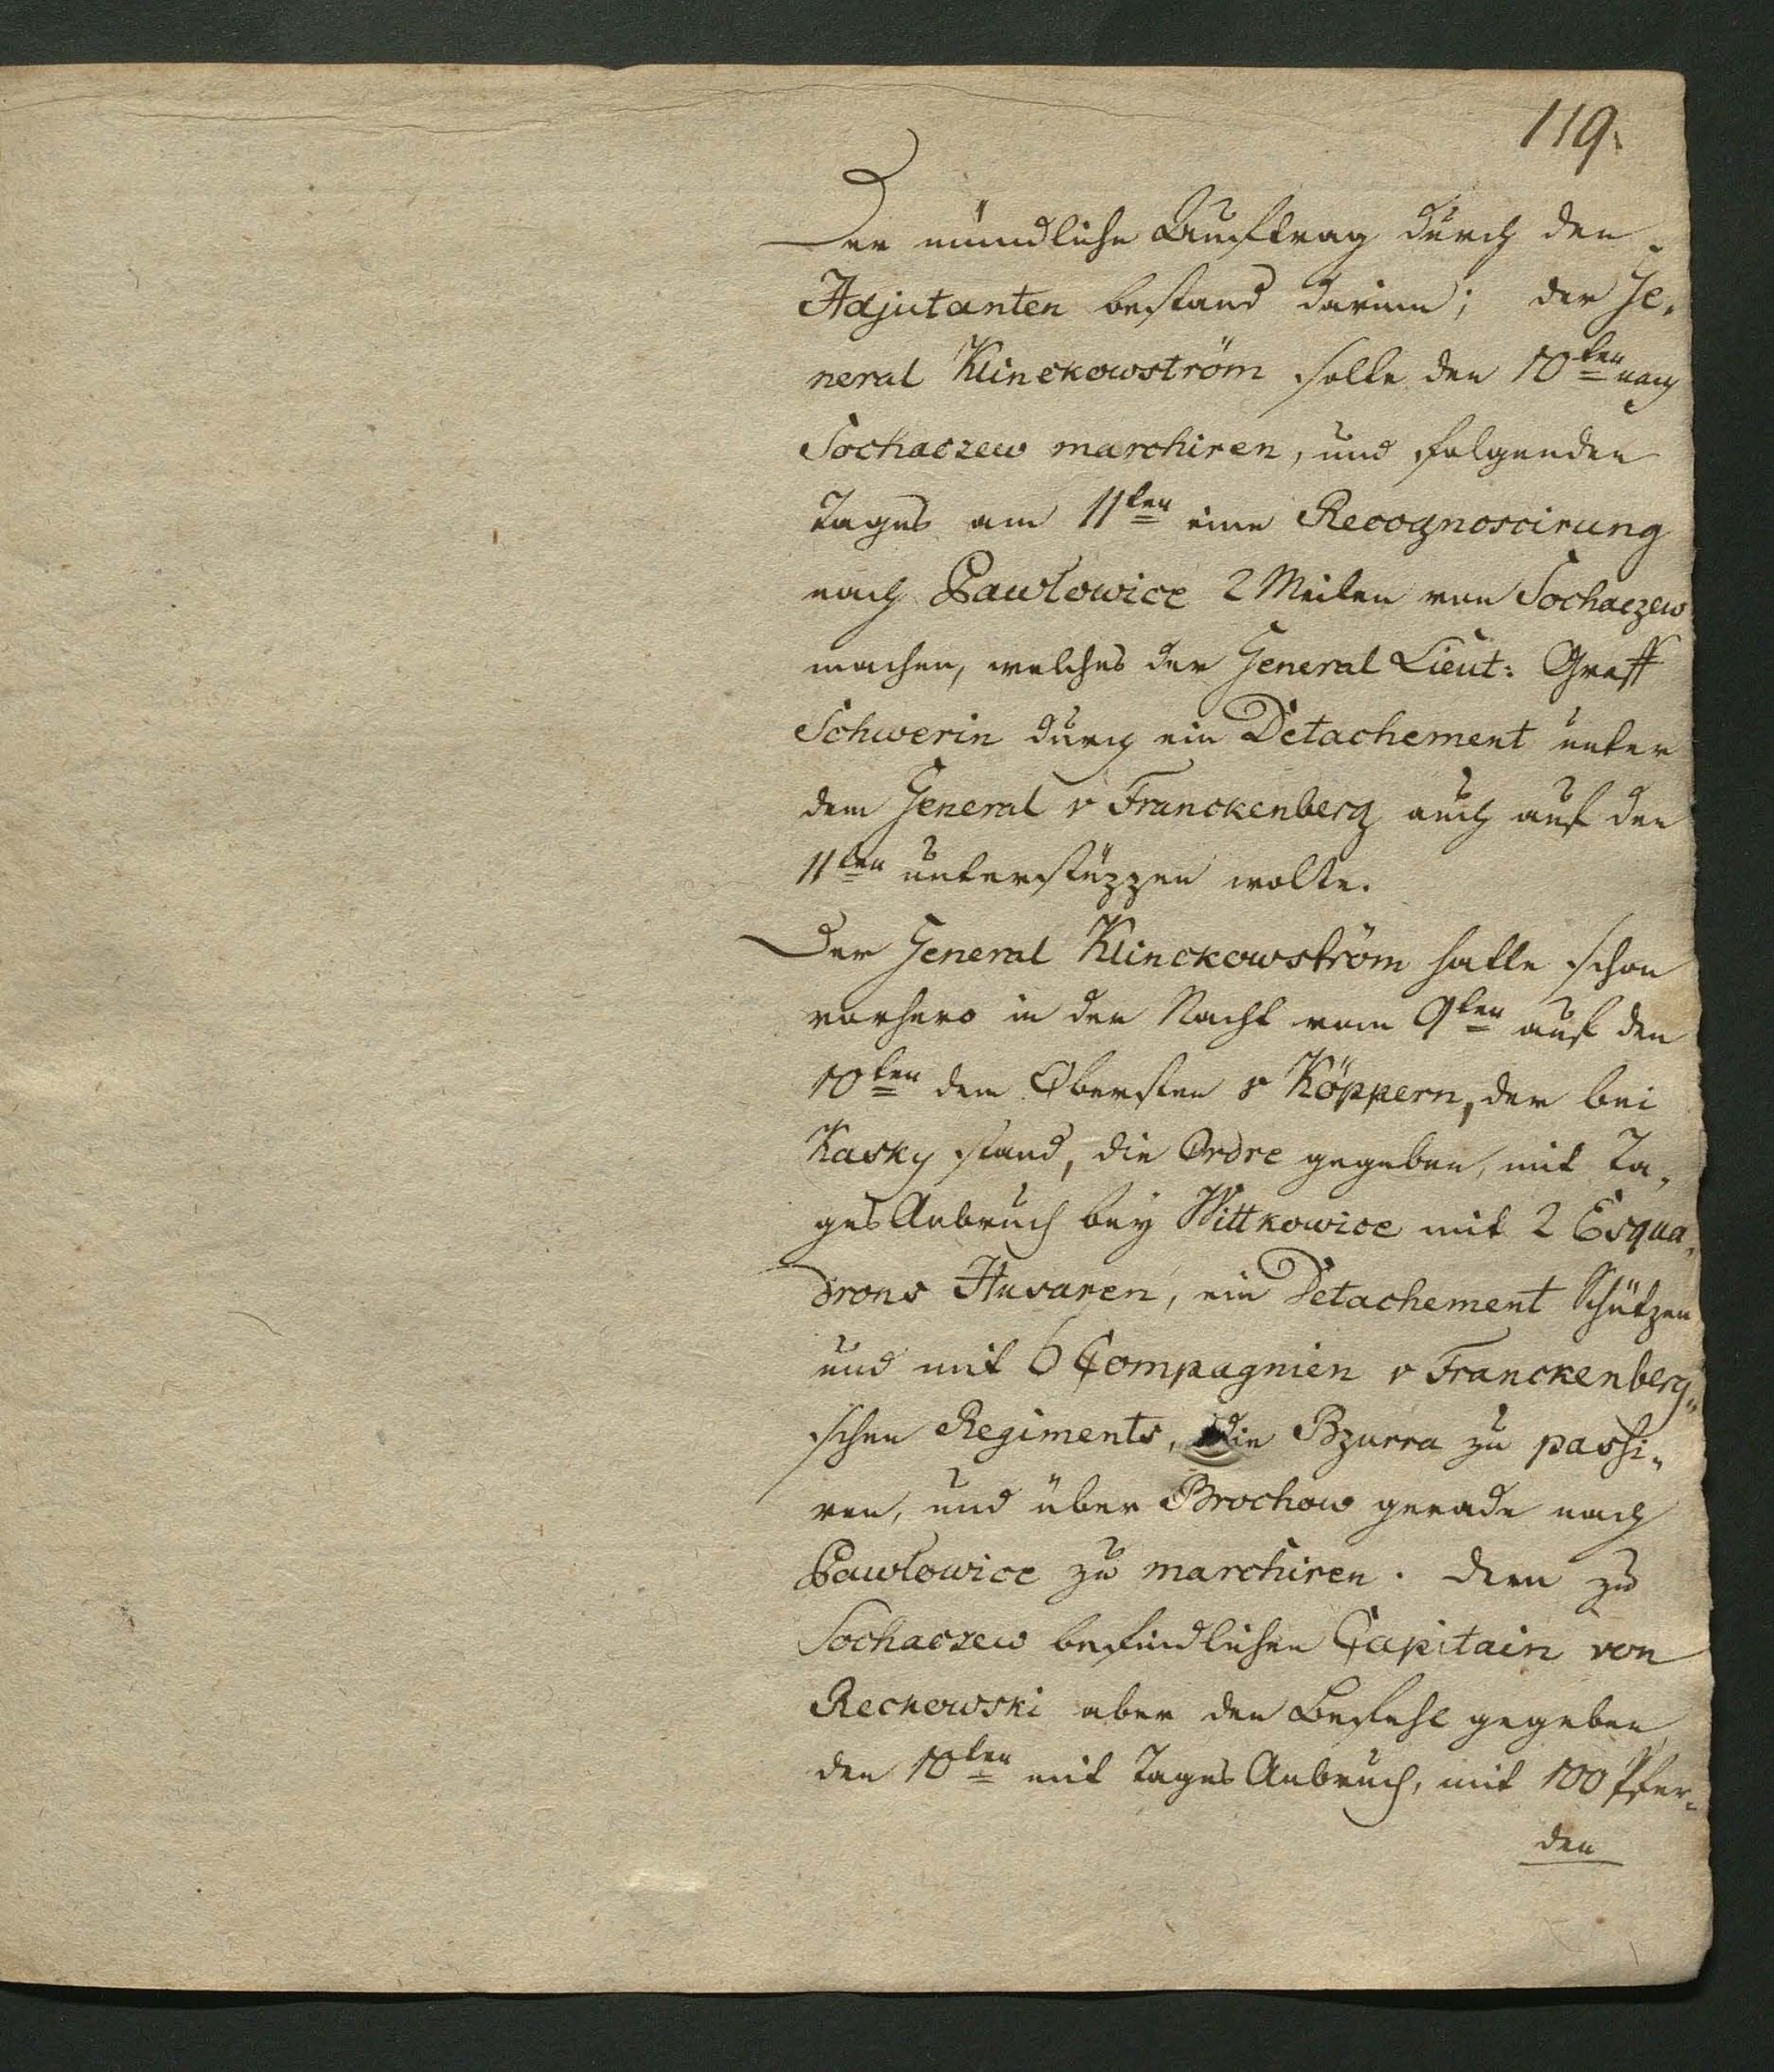 119.
Der mündliche Auftrag durch den
Adjutanten bestand darinn; der Ge-
neral Klinckowström solte den 10ten nach
Sochaczew marchiren, und folgenden
Tages am 11ten eine Recognoscirung
nach Pawlowice 2 Meilen von Sochaczew
machen, welches der General Lieut: Graff
Schwerin durch ein Detachement unter
dem General v Franckenberg auch auf den
11ten unterstüzzen wolte.
Der General Klinckowström hatte schon
vorhero in der Nacht vom 9ten auf den
10ten dem Obersten v Köppern, der bei
Kasky stand, die Ordre gegeben, mit Ta-
ges Anbruch bey Wittkowice mit 2 Esqua-
drons Husaren, ein Detachement Schützen
und mit 6 Compagnien v Franckenberg-
schen Regiments, die Bzurra zu passi-
ren, und über Brochow gerade nach
Pawlowice zu marchiren. Dem zu
Sochaczew befindlichen Capitain von
Reckowski aber den Befehl gegeben
den 10ten mit Tages Anbruch, mit 100 Pfer-
den